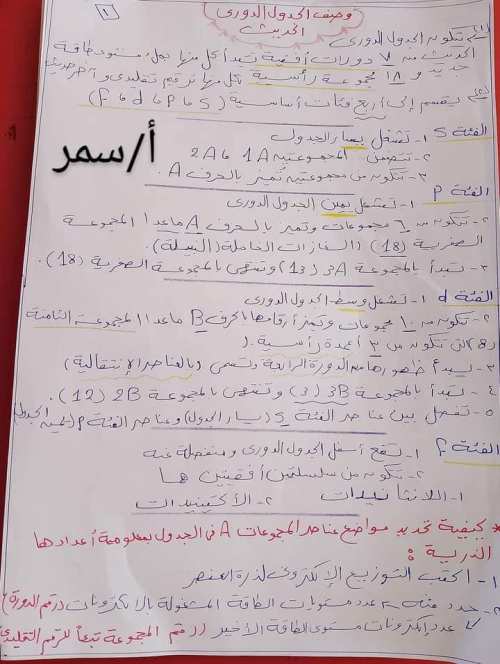 وصف الجدول الدورى
الحديث
١
س١/ يتكون الجدول الدورى
الحديث من ٧ دورات أفقية تبدأ كل منها بملء مستوى طاقة
جديد و ١٨ مجموعة رأسية لكل منها ترقيم تقليدى وآخر حديث
س٢/ ينقسم إلى أربع فئات أساسية (s ، p ، d ، f)
الفئة s ١- تشغل يسار الجدول
٢- تتضمن المجموعتين 1A ، 2A
أ/سمر
٣- تتكون من مجموعتين تميز بالحرف A.
الفئة p ١- تشغل يمين الجدول الدورى
٢- تتكون من ٦ مجموعات وتميز بالحرف A ماعدا المجموعة
الصفرية (18) (الغازات الخاملة (النبيلة).
٣- تبدأ بالمجموعة 3A (13) وتنتهى بالمجموعة الصفرية (18).
الفئة d ١- تشغل وسط الجدول الدورى
٢- تتكون من ١٠ مجموعات وتميز أرقامها بالحرف B ماعدا المجموعة الثامنة
(8) التى تتكون من ٣ أعمدة رأسية.
٣- يبدأ ظهورها من الدورة الرابعة وتسمى (بالعناصر الإنتقالية)
٤- تبدأ بالمجموعة 3B (3) وتنتهى بالمجموعة 2B (12).
٥- تفصل بين عناصر الفئة s (يسار الجدول) وعناصر الفئة p (يمين الجدول)
الفئة f ١- تقع أسفل الجدول الدورى ومنفصلة عنه
٢- تتكون من سلسلتين أفقيتين هما
١- اللانثانيدات ٢- الأكتينيدات
* كيفية تحديد مواضع عناصر المجموعات A فى الجدول بمعلومية أعدادها
الذرية :
١- اكتب التوزيع الإلكترونى لذرة العنصر
٢- حدد منه عدد مستويات الطاقة المشغولة بالإلكترونات (رقم الدورة)
عدد إلكترونات مستوى الطاقة الأخير (رقم المجموعة تبعاً للترقيم التقليدى)